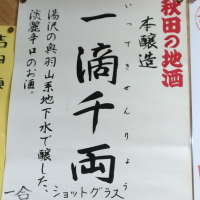 秋田の地酒
本醸造
いってきせんりょう
一滴千両
湯沢の奥羽山系地下水で醸した、
淡麗辛口のお酒。
一合
ショットグラス